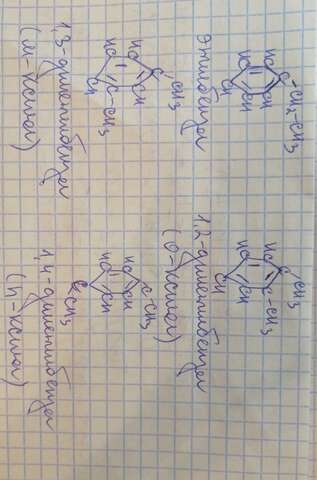 C-CH₂-CH₃
HC CH
HC CH
CH
этилбензол
CH₃
C
HC C-CH₃
HC CH
CH
1,2-диметилбензол
(о-ксилол)
CH₃
C
HC CH
HC C-CH₃
CH
1,3-диметилбензол
(м-ксилол)
C-CH₃
HC CH
HC CH
C
CH₃
1,4-диметилбензол
(п-ксилол)